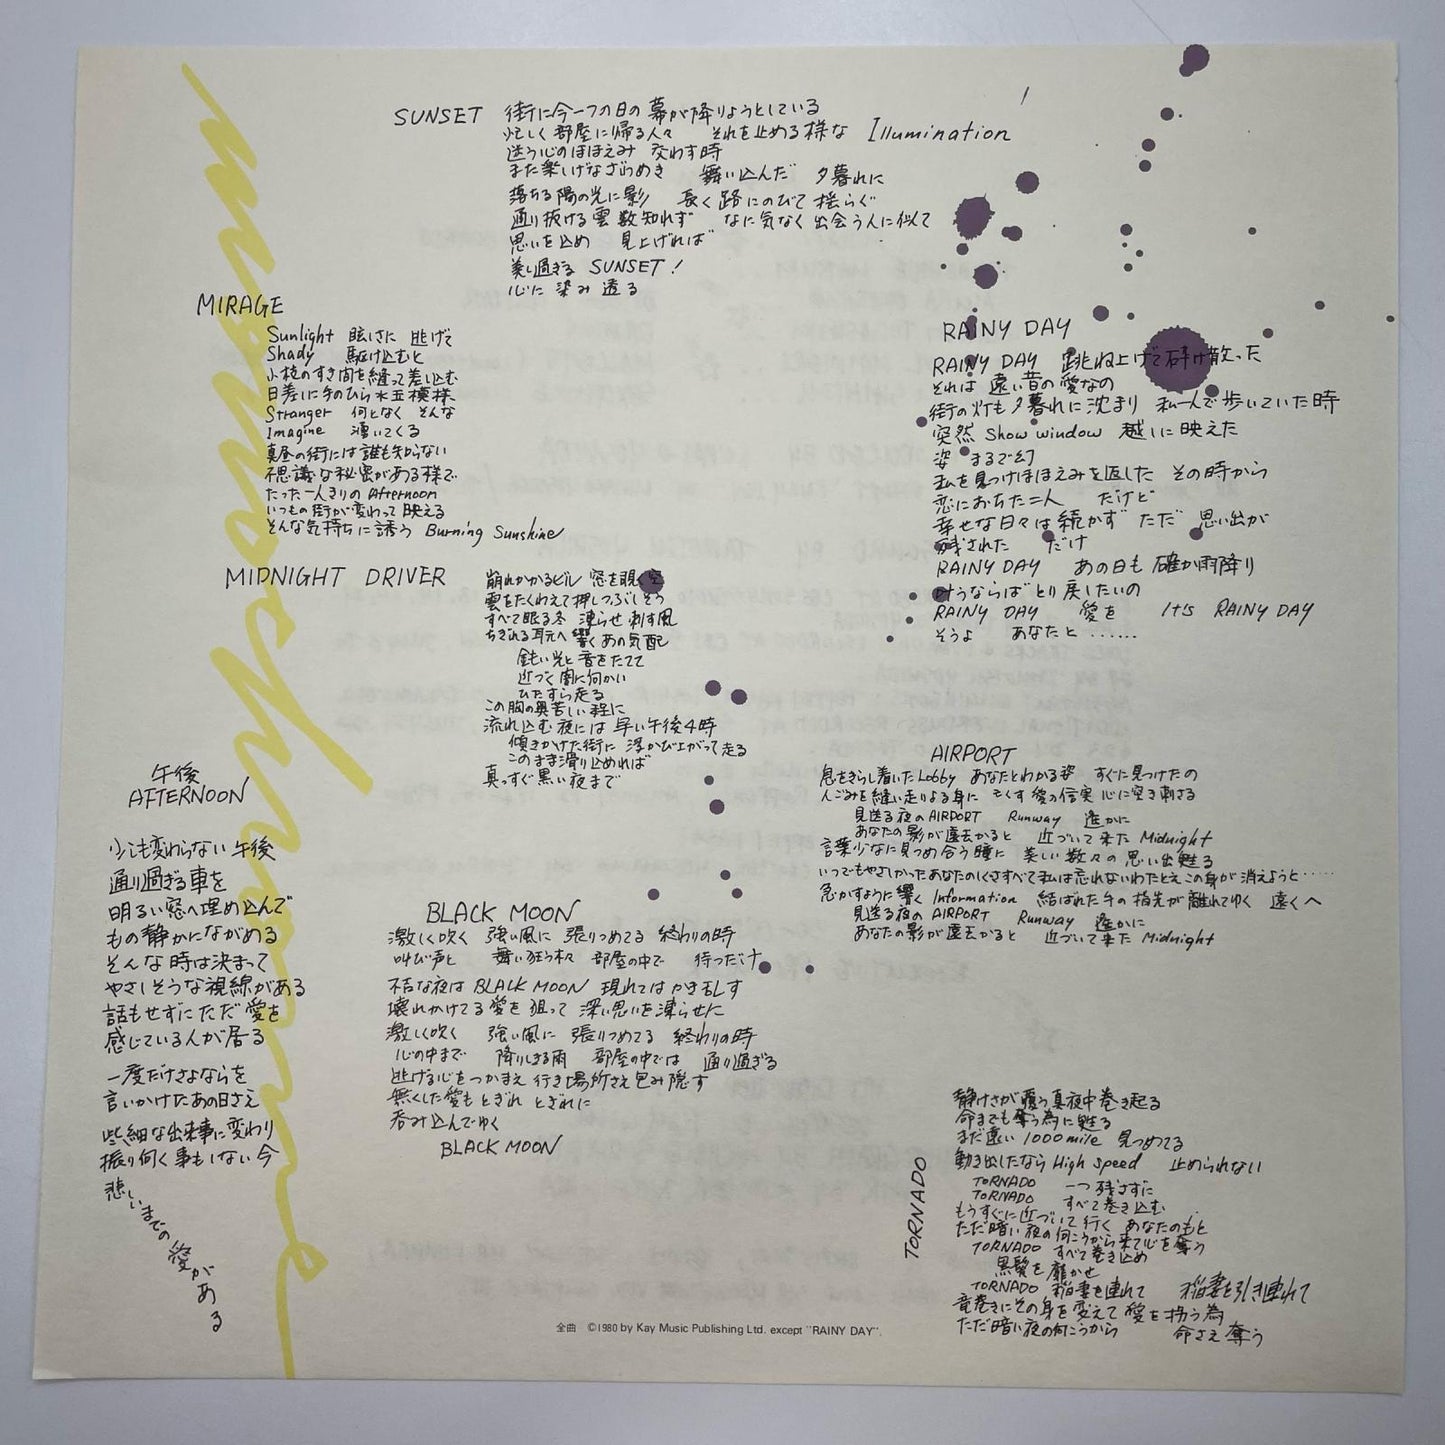 monochrome
SUNSET
街に今一つの日の幕が降りようとしている
忙しく部屋に帰る人々 それを止める様な Illumination
迷う心のほほえみ 交わす時
また楽しげなざわめき 舞い込んだ 夕暮れに
落ちる陽の光に影 長く路にのびて揺らぐ
通り抜ける雲数知れず なに気なく出会う人に似て
思いを込め 見上げれば
美し過ぎる SUNSET!
心に染み透る
MIRAGE
Sunlight 眩しさに 逃げて
Shady 駆け込むと
小枝のすき間を縫って差し込む
日差に手のひら水玉模様
Stranger 何となく そんな
Imagine 湧いてくる
真昼の街には誰も知らない
不思議な秘密がある様で
たった一人きりの Afternoon
いつもの街が変わって映える
そんな気持ちに誘う Burning Sunshine
MIDNIGHT DRIVER
崩れかかるビル 窓を覗く空
雲をたくわえて押しつぶしそう
すべて眠る冬 凍らせ刺す風
ちぎれる耳元へ響くあの気配
鈍い光と音をたてて
近づく闇に向かい
ひたすら走る
この胸の奥苦しい程に
流れ込む夜には早い午後4時
傾きかけた街に 浮かび上がって走る
このまま滑り込めれば
真っすぐ黒い夜まで
午後
AFTERNOON
少しも変わらない午後
通り過ぎる車を
明るい窓へ埋め込んで
もの静かにながめる
そんな時は決まって
やさしそうな視線がある
話もせずにただ愛を
感じている人が居る
一度だけさよならを
言いかけたあの日さえ
些細な出来事に変わり
振り向く事もしない今
悲しいまでの愛がある
BLACK MOON
激しく吹く 強い風に 張りつめてる 終わりの時
叫び声と 舞い狂う木々 部屋の中で 待つだけ
不吉な夜は BLACK MOON 現れてはかき乱す
壊れかけてる愛を狙って 深い思いを凍らせに
激しく吹く 強い風に 張りつめてる 終わりの時
心の中まで 降りしきる雨 部屋の中では 通り過ぎる
逃げる心をつかまえ 行き場所さえ包み隠す
無くした愛もとぎれ とぎれに
呑み込んでゆく
BLACK MOON
RAINY DAY
RAINY DAY 跳ね上げて砕け散った
それは 遠い昔の愛なの
街の灯も夕暮れに沈まり 私一人で歩いていた時
突然 Show window 越しに映えた
姿 まるで幻
私を見つけほほえみを返した その時から
恋におちた二人 だけど
幸せな日々は続かず ただ 思い出が
残された だけ
RAINY DAY あの日も確か雨降り
叶うならば とり戻したいの
RAINY DAY 愛を It's RAINY DAY
そうよ あなたと ......
AIRPORT
息をきらし着いた Lobby あなたとわかる姿 すぐに見つけたの
人ごみを縫い走りよる身に そくす愛の信実 心に突き刺さる
見送る夜の AIRPORT Runway 遥かに
あなたの影が遠去かると 近づいて来た Midnight
言葉少なに見つめ合う瞳に 美しい数々の思い出甦る
いつでもやさしかったあなたのしぐさすべて私は忘れないわたとえこの身が消えようと‥‥‥
急かすように響く Information 結ばれた手の指先が離れてゆく 遠くへ
見送る夜の AIRPORT Runway 遥かに
あなたの影が遠去かると 近づいて来た Midnight
TORNADO
静けさが覆う真夜中巻き起る
命までも奪う為に甦る
まだ遠い 1000 mile 見つめてる
動き出したなら High speed 止められない
TORNADO 一つ残さずに
TORNADO すべて巻き込む
もうすぐに近づいて行く あなたのもと
ただ暗い夜の向こうから来て心を奪う
TORNADO すべて巻き込め
黒髪を靡かせ
TORNADO 稲妻を連れて 稲妻を引き連れて
竜巻きにその身を変えて愛を拐う為
ただ暗い夜の向こうから 命さえ奪う
全曲 ©1980 by Kay Music Publishing Ltd. except "RAINY DAY".